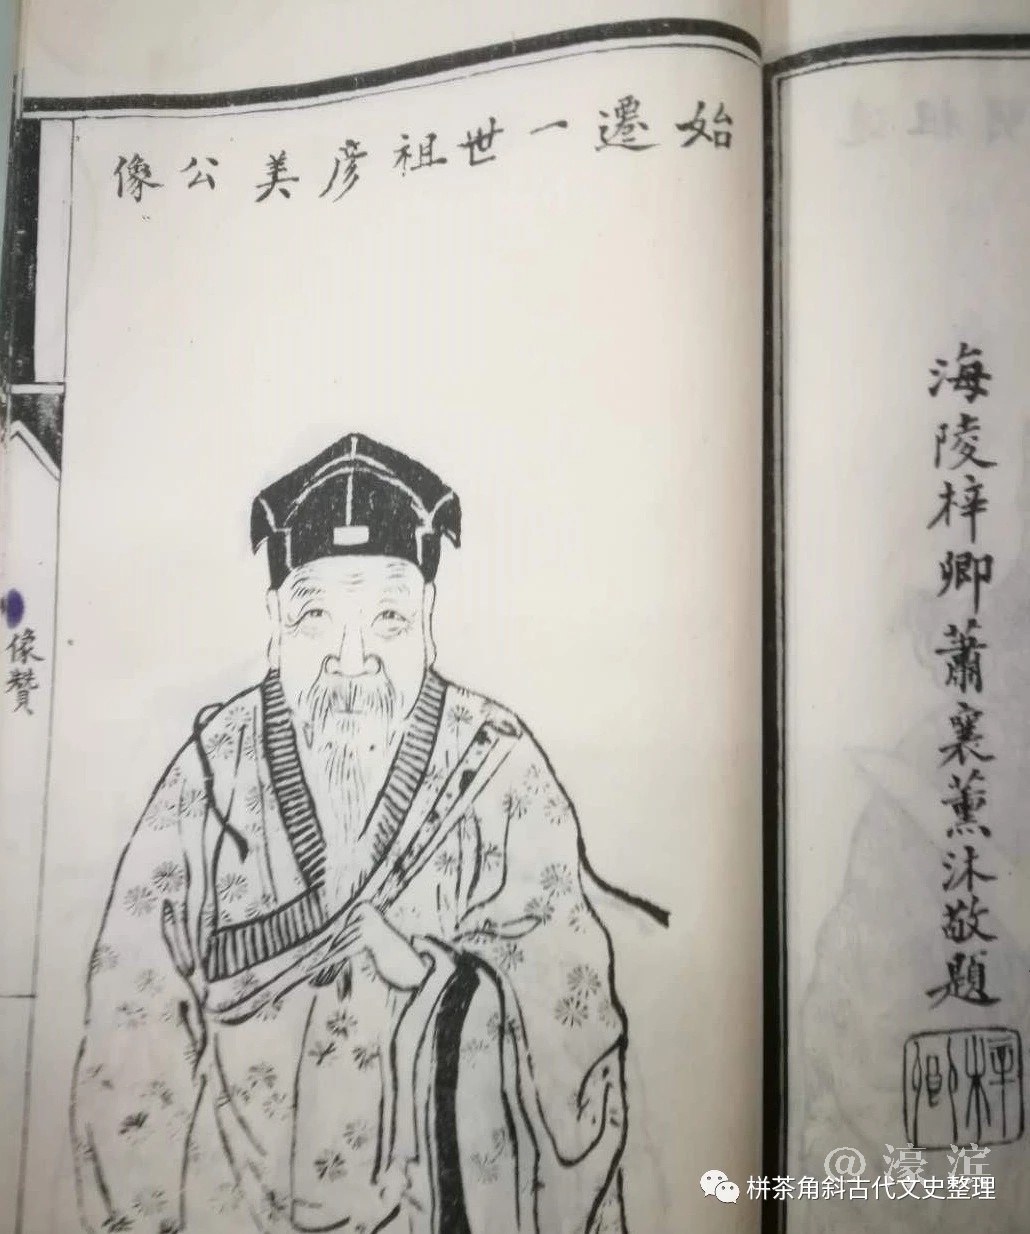 海陵梓卿蕭襄薰沐敬題
梓卿
始遷一世祖彥美公像
像贊
@濠滨
栟茶角斜古代文史整理